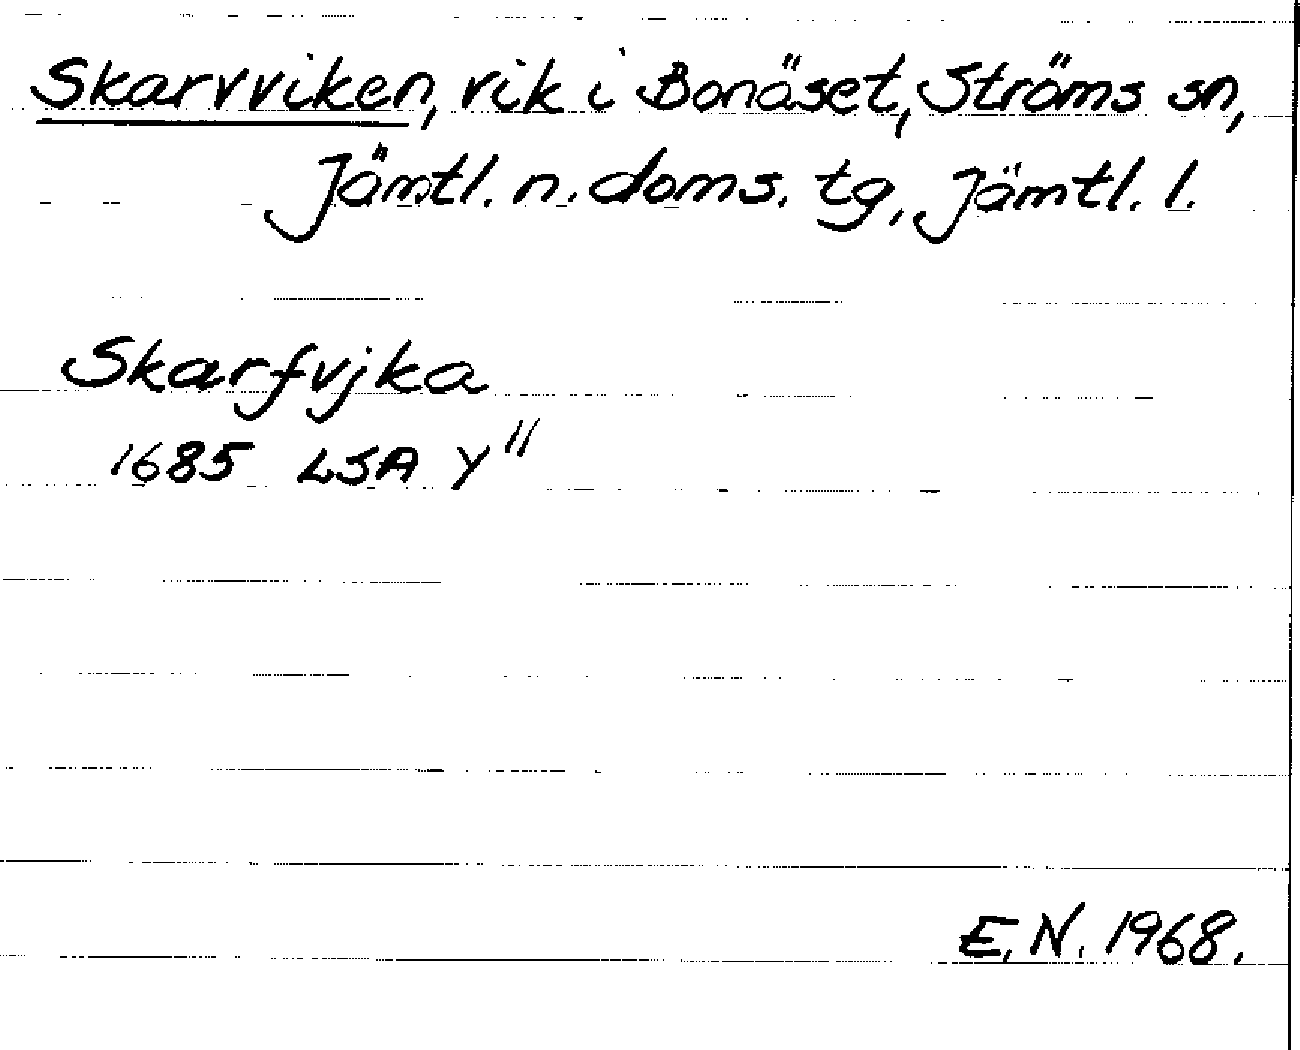 Skarvviken, vik i Bonäset, Ströms sn,
Jämtl. n. doms. tg, Jämtl. l.
Skarfvjka
1685 LSA Y"
E. N. 1968.